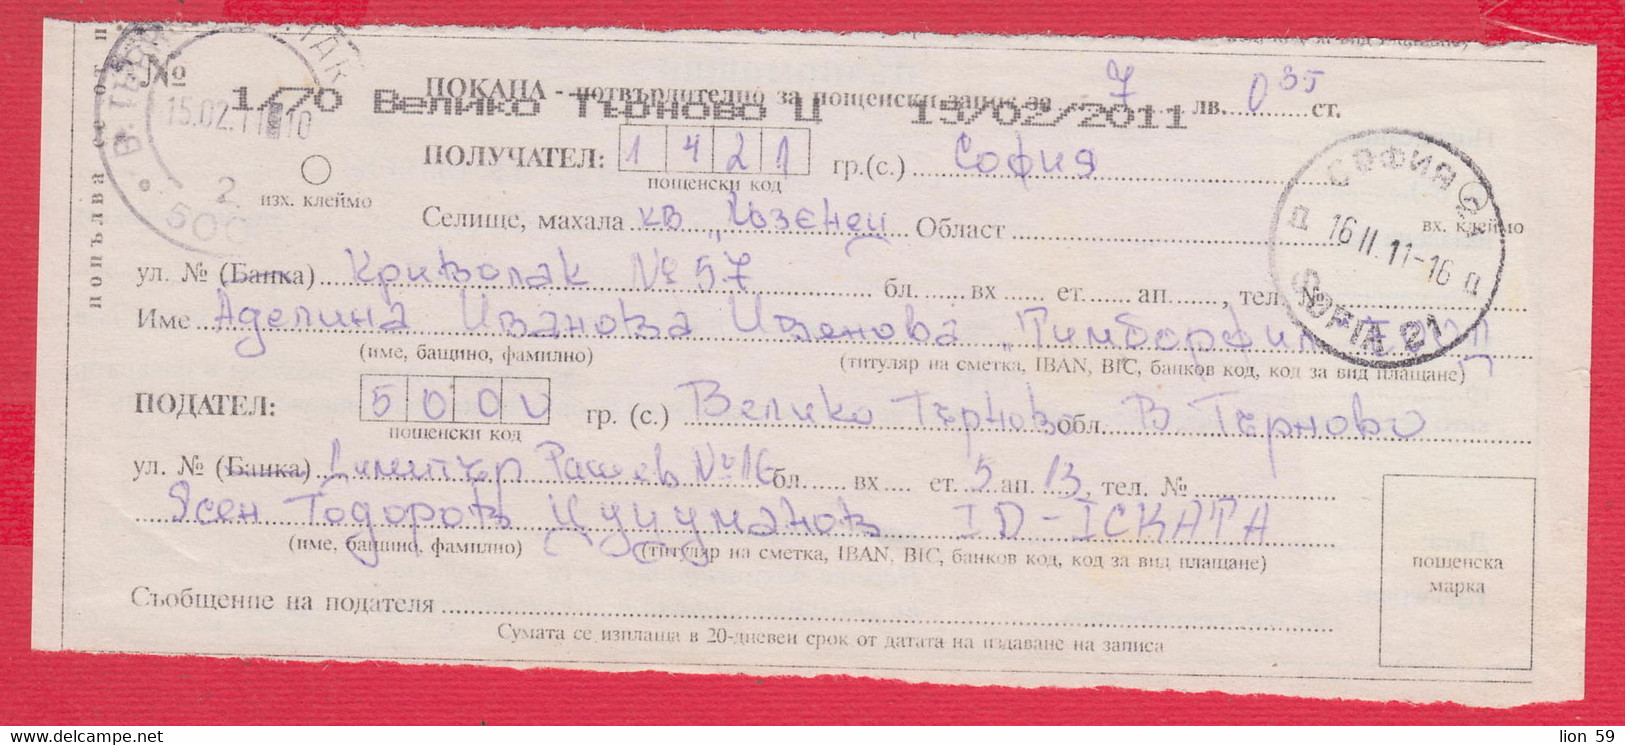 №
1/70 Велико Търново Ц 15/02/2011
ПОКАНА - потвърдително за пощенски запис за 7 лв. 0 35 ст.
15.02.11 10
2
500
изх. клеймо
ПОЛУЧАТЕЛ: 1 4 2 1 гр.(с.) София
пощенски код
СОФИЯ 21
16 II. 11-16
SOFIA 21
Селище, махала кв. Лозенец Област
вх. клеймо
ул. № (Банка) Криволак № 57 бл. вх ет. ап., тел. №
Име Аделина Иванова
(име, бащино, фамилно) (титуляр на сметка, IBAN, BIC, банков код, код за вид плащане)
ПОДАТЕЛ: 5 0 0 0 гр. (с.) Велико Търново обл. В. Търново
пощенски код
ул. № (Банка) Димитър Рашев № 16 бл. вх ет. 5 ап. 13, тел. №
Ясен Тодоров ID-ІСКАТА
(име, бащино, фамилно) (титуляр на сметка, IBAN, BIC, банков код, код за вид плащане)
пощенска
марка
Съобщение на подателя
Сумата се изплаща в 20-дневен срок от датата на издаване на записа
попълва се от п
lion 59